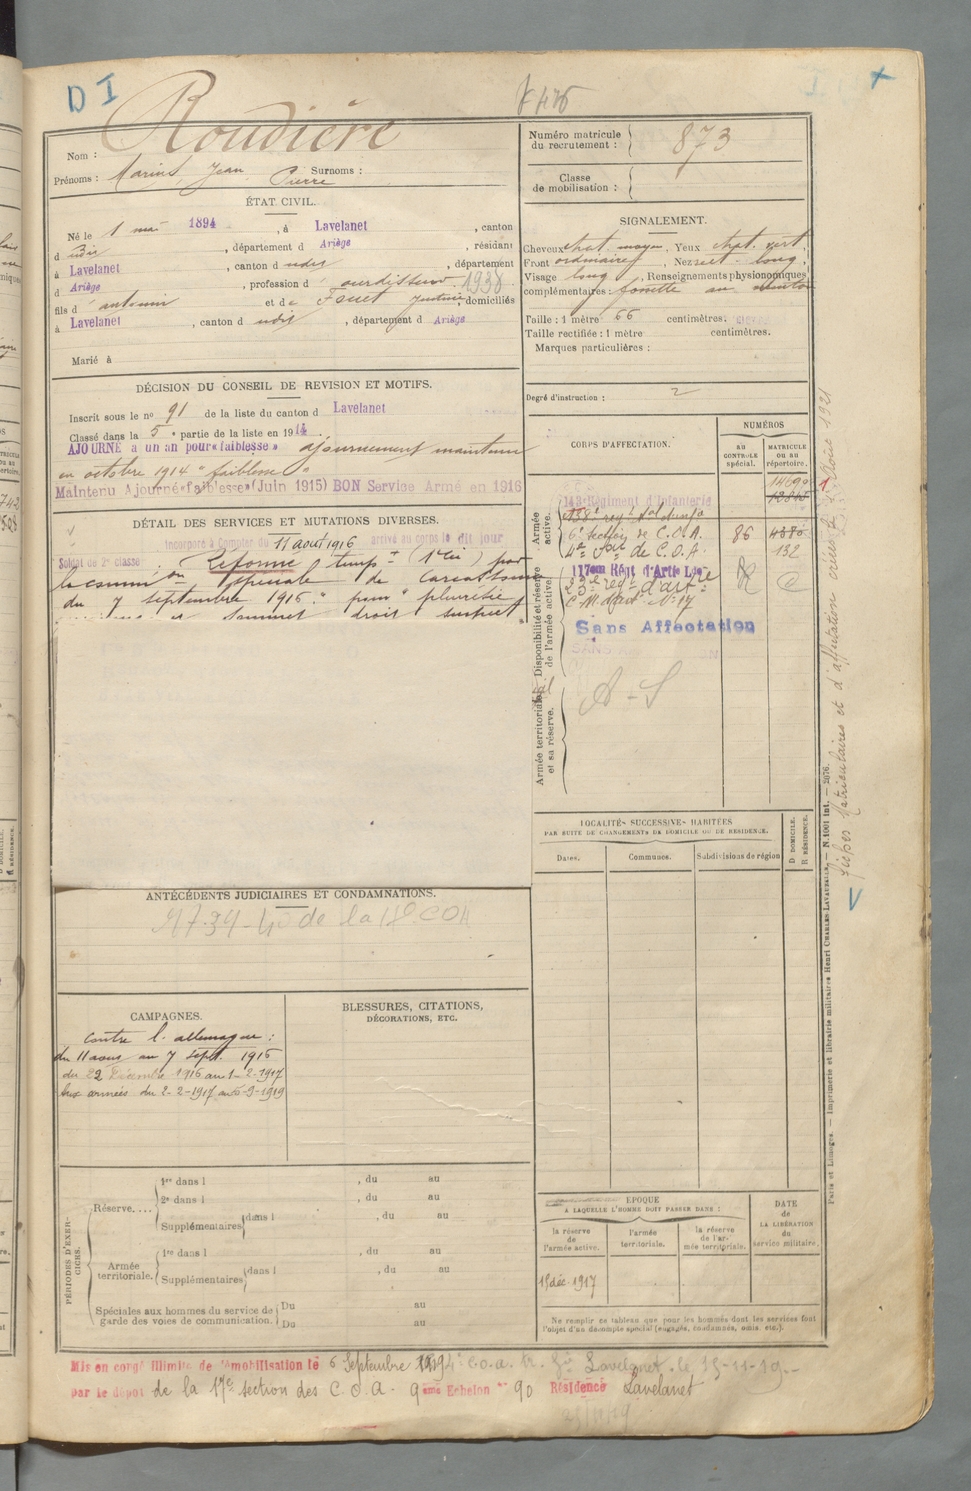 D I
Roudière
Nom :
Prénoms : Marius, Jean Pierre Surnoms :
ÉTAT CIVIL.
Né le 1 mai 1894, à Lavelanet, canton
d udit, département d Ariège, résidant
à Lavelanet, canton d udit, département
d Ariège, profession d' ourdisseur 1938
fils d' antonin et de Fouet domiciliés
à Lavelanet, canton d udit, département d Ariège
Marié à
DÉCISION DU CONSEIL DE REVISION ET MOTIFS.
Inscrit sous le no 91 de la liste du canton d Lavelanet
Classé dans la 5e partie de la liste en 1914.
AJOURNÉ à un an pour «faiblesse» ajournement maintenu
en octobre 1914 "faiblesse"
Maintenu Ajourné «faiblesse» (Juin 1915) BON Service Armé en 1916
DÉTAIL DES SERVICES ET MUTATIONS DIVERSES.
Incorporé à compter du 11 aout 1916 arrivé au corps le dit jour
Soldat de 2e classe Réformé temp. (1e cie) par
la commion spéciale de Carcassonne
du 7 septembre 1916. " pour " pleurésie
sommet droit suspect
ANTÉCÉDENTS JUDICIAIRES ET CONDAMNATIONS.
CAMPAGNES.
Contre l'allemagne :
du 11 aout au 7 sept. 1916
du 22 Décembre 1916 au 1-2-1917
Aux armées du 2-2-1917 au 5-9-1919
BLESSURES, CITATIONS,
DÉCORATIONS, ETC.
PÉRIODES D'EXERCICES.
Réserve....
1re dans l , du au
2e dans l , du au
Supplémentaires dans l , du au
Armée territoriale.
1re dans l , du au
Supplémentaires dans l , du au
Spéciales aux hommes du service de garde des voies de communication.
Du au
Du au
Numéro matricule du recrutement : 873
Classe de mobilisation :
SIGNALEMENT.
Cheveux chat. moyen, Yeux chat. vert,
Front ordinaire, Nez rect. long,
Visage long, Renseignements physionomiques
complémentaires : fossette au menton
Taille : 1 mètre 66 centimètres.
Taille rectifiée : 1 mètre centimètres.
Marques particulières :
Degré d'instruction : 2
CORPS D'AFFECTATION.
NUMÉROS
AU CONTROLE spécial.
MATRICULE OU AU répertoire.
Armée active.
143e Régiment d'Infanterie
6e section de C.O.A. 86
de C.O.A. 132
Disponibilité et réserve de l'armée active.
117em Régt d'Artie Lde
23e regt d'artie
Sans Affectation
Armée territoriale et sa réserve.
A-S
LOCALITÉS SUCCESSIVES HABITÉES
PAR SUITE DE CHANGEMENTS DE DOMICILE OU DE RÉSIDENCE.
Dates.
Communes.
Subdivisions de région
D. DOMICILE.
R. RÉSIDENCE.
ÉPOQUE
A LAQUELLE L'HOMME DOIT PASSER DANS :
la réserve de l'armée active.
l'armée territoriale.
la réserve de l'armée territoriale.
DATE de LA LIBÉRATION du service militaire.
1 déc. 1917
Ne remplir ce tableau que pour les hommes dont les services font
l'objet d'un décompte spécial (engagés, condamnés, omis, etc.).
Paris et Limoges. — Imprimerie et librairie militaires Henri CHARLES-LAVAUZELLE. — N. 1001 int. — 2076.
Mis en congé illimité de démobilisation le 6 Septembre 1919 Lavelanet le 15-11-19
par le dépôt de la 17e section des C.O.A. 9eme Echelon no 90 Résidence Lavelanet